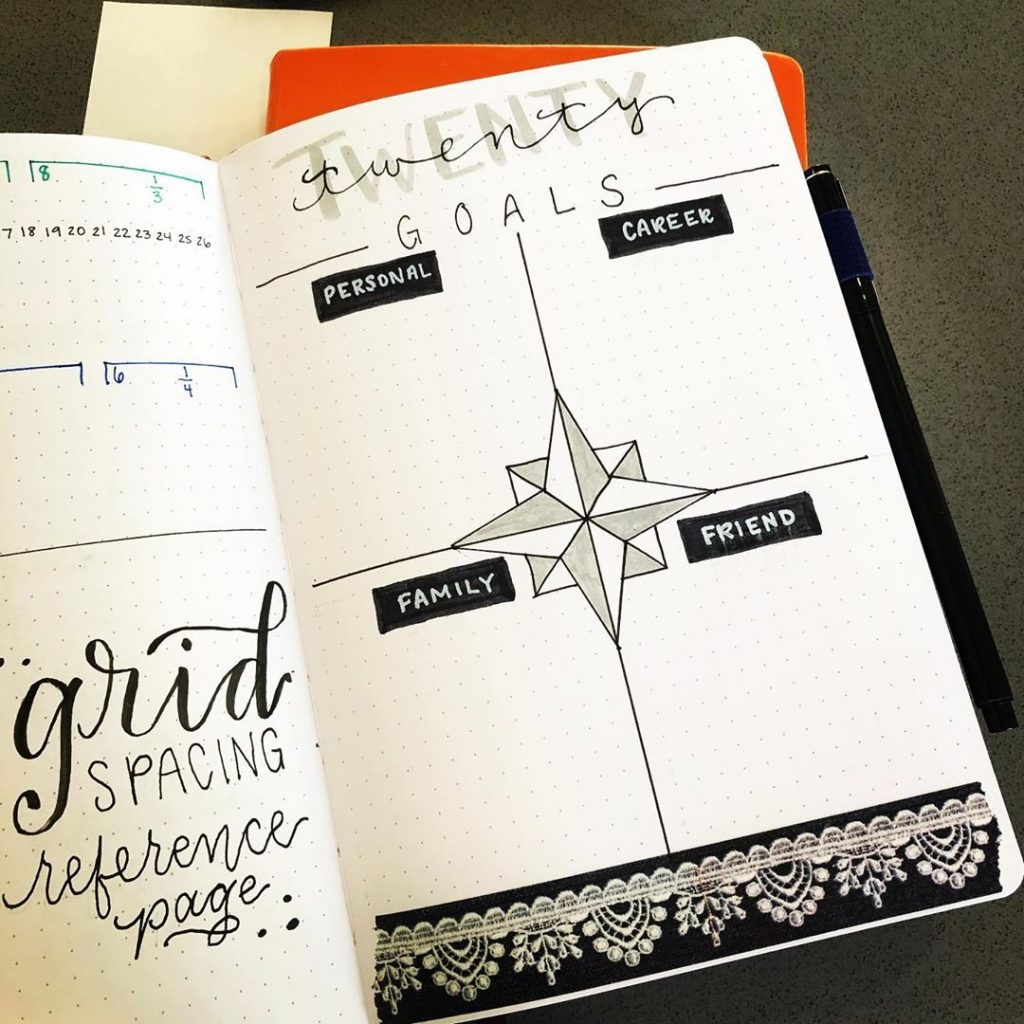 8
1/3
7 18 19 20 21 22 23 24 25 26
6 1/4
grid
SPACING
reference
page
TWENTY
twenty
GOALS
PERSONAL
CAREER
FAMILY
FRIEND